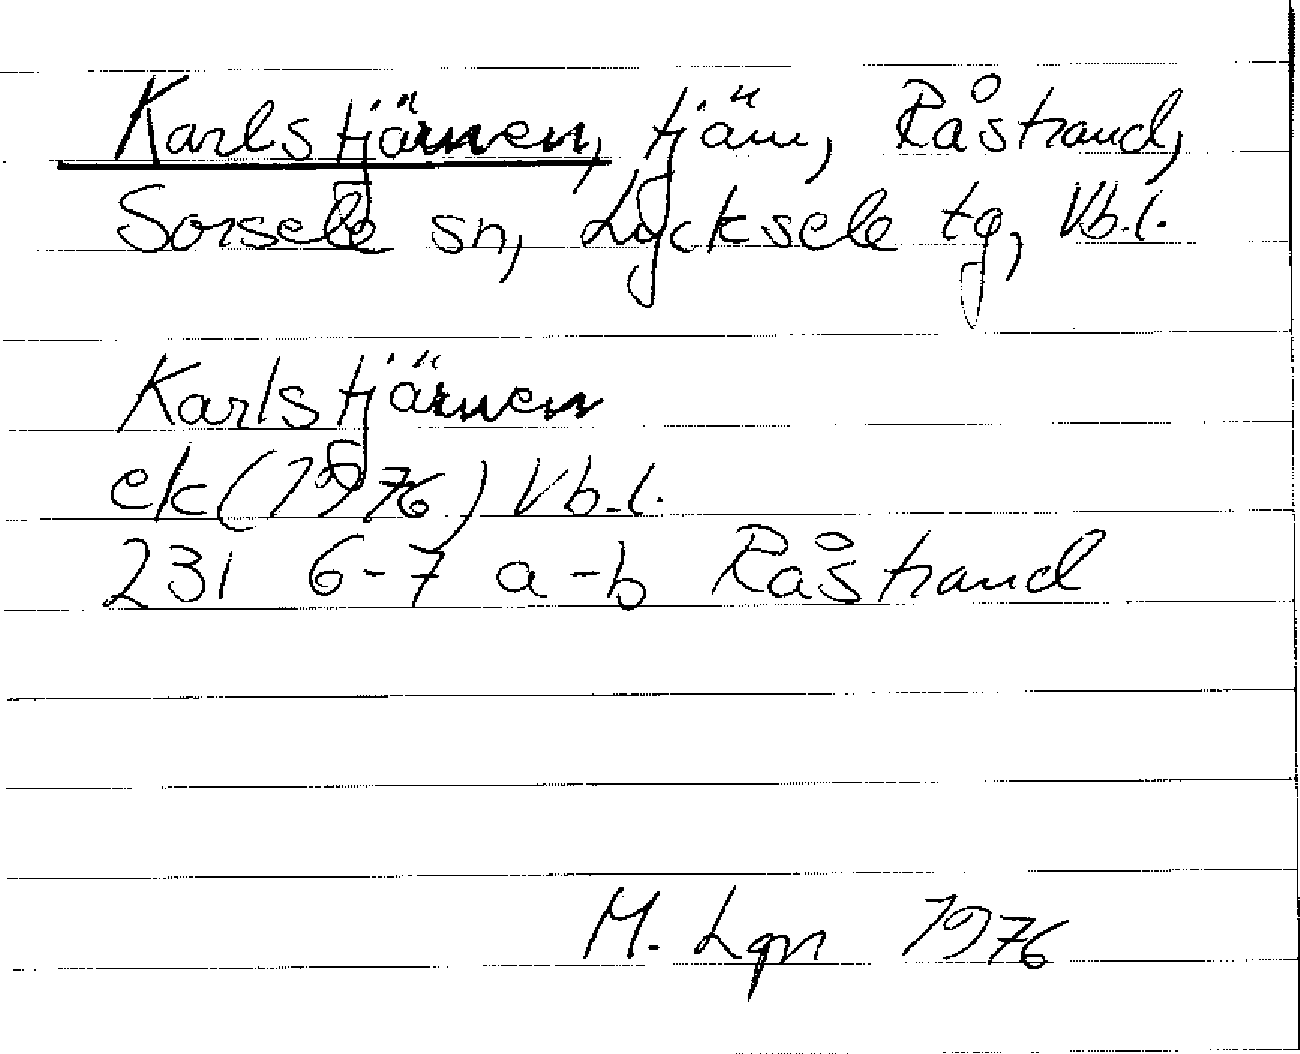 Karlstjärnen, tjärn, Råstrand,
Sorsele sn, Lycksele tg, Vb.l.
Karlstjärnen
ek (1976) Vb.l.
231 6-7 a-b Råstrand
M. Lgn 1976